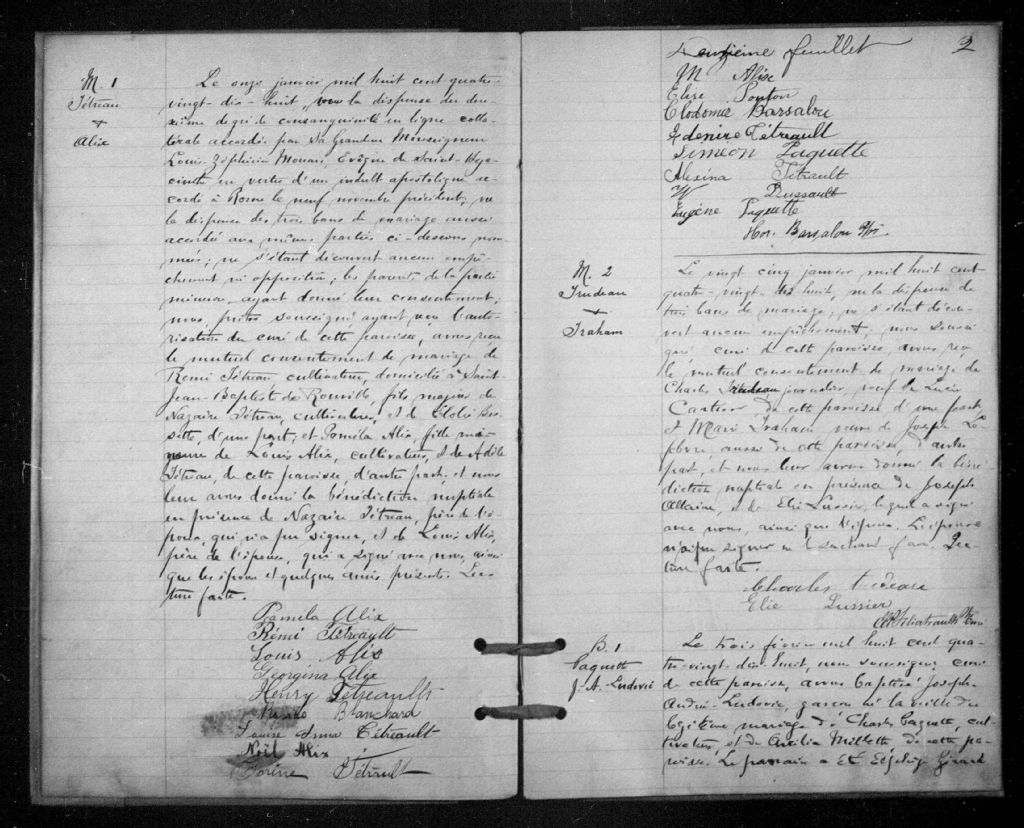 M. 1
Tétreau
+
Alix
Le onze janvier mil huit cent quatre-
vingt-dix-huit, vu la dispense du deu-
xième degré de consanguinité en ligne colla-
térale accordée par Sa Grandeur Monseigneur
Louis Zéphirin Moreau, Évêque de Saint-Hya-
cinthe en vertu d'un indult apostolique ac-
cordé à Rome le neuf novembre précédent; vu
la dispense des trois bans de mariage aussi
accordée aux mêmes parties ci-dessous nom-
més; ne s'étant découvert aucun empê-
chement ni opposition; les parents de la partie
mineure ayant donné leur consentement;
nous, prêtre soussigné ayant reçu l'auto-
risation du curé de cette paroisse, avons reçu
le mutuel consentement de mariage de
Rémi Tétreau cultivateur, domicilié à Saint-
Jean-Baptiste de Rouville, fils majeur de
Nazaire Tétreau, cultivateur, et de Elodie Bes-
sette, d'une part; et Paméla Alix, fille mi-
neure de Louis Alix, cultivateur, et de Adèle
Tétreau, de cette paroisse, d'autre part; et nous
leur avons donné la bénédiction nuptiale
en présence de Nazaire Tétreau, père de l'é-
poux, qui n'a pu signer, et de Louis Alix,
père de l'épouse, qui a signé avec nous, ainsi
que les époux et quelques amis présents. Lec-
ture faite.
Pamela Alix
Rémi Tétreault
Louis Alix
Georgina Alix
Henry Tétreault
Blanchard
Louise Anna Tétreault
Noël Alix
Tétrault
2
Deuxième feuillet
M Alix
Elise Ponton
Clodomir Barsalou
Edenire Tétreault
Simeon Paquette
Alexina Tétrault
W Brussault
Eugène Paquette
Hor. Barsalou Ptre
M. 2
Trudeau
+
Traham
Le vingt cinq janvier mil huit cent
quatre-vingt-dix huit, vu la dispense de
trois bans de mariage, ne s'étant décou-
vert aucun empêchement, nous soussi-
gné curé de cette paroisse avons reçu
le mutuel consentement de mariage de
Charles Trudeau journalier, veuf de Lucie
Cartier de cette paroisse d'une part,
et Marie Traham veuve de Joseph Le-
febvre aussi de cette paroisse, d'autre
part, et nous leur avons donné la béné-
diction nuptiale en présence de Joseph
Allaire, et de Elie Lussier, lequel a signé
avec nous, ainsi que l'époux. L'épouse
n'a pu signer ne sachant faire. Lec-
ture faite.
Charles trudeau
Elie Lussier
B. 1
Paquett
J. A. Ludovic
Le trois février mil huit cent qua-
tre-vingt-dix huit, nous soussigné, curé
de cette paroisse, avons baptisé Joseph-
André-Ludovic, garçon né la veille du
légitime mariage de Charles Paquett, cul-
tivateur, et de Aurélia Millette, de cette pa-
roisse. Le parrain a été Girard